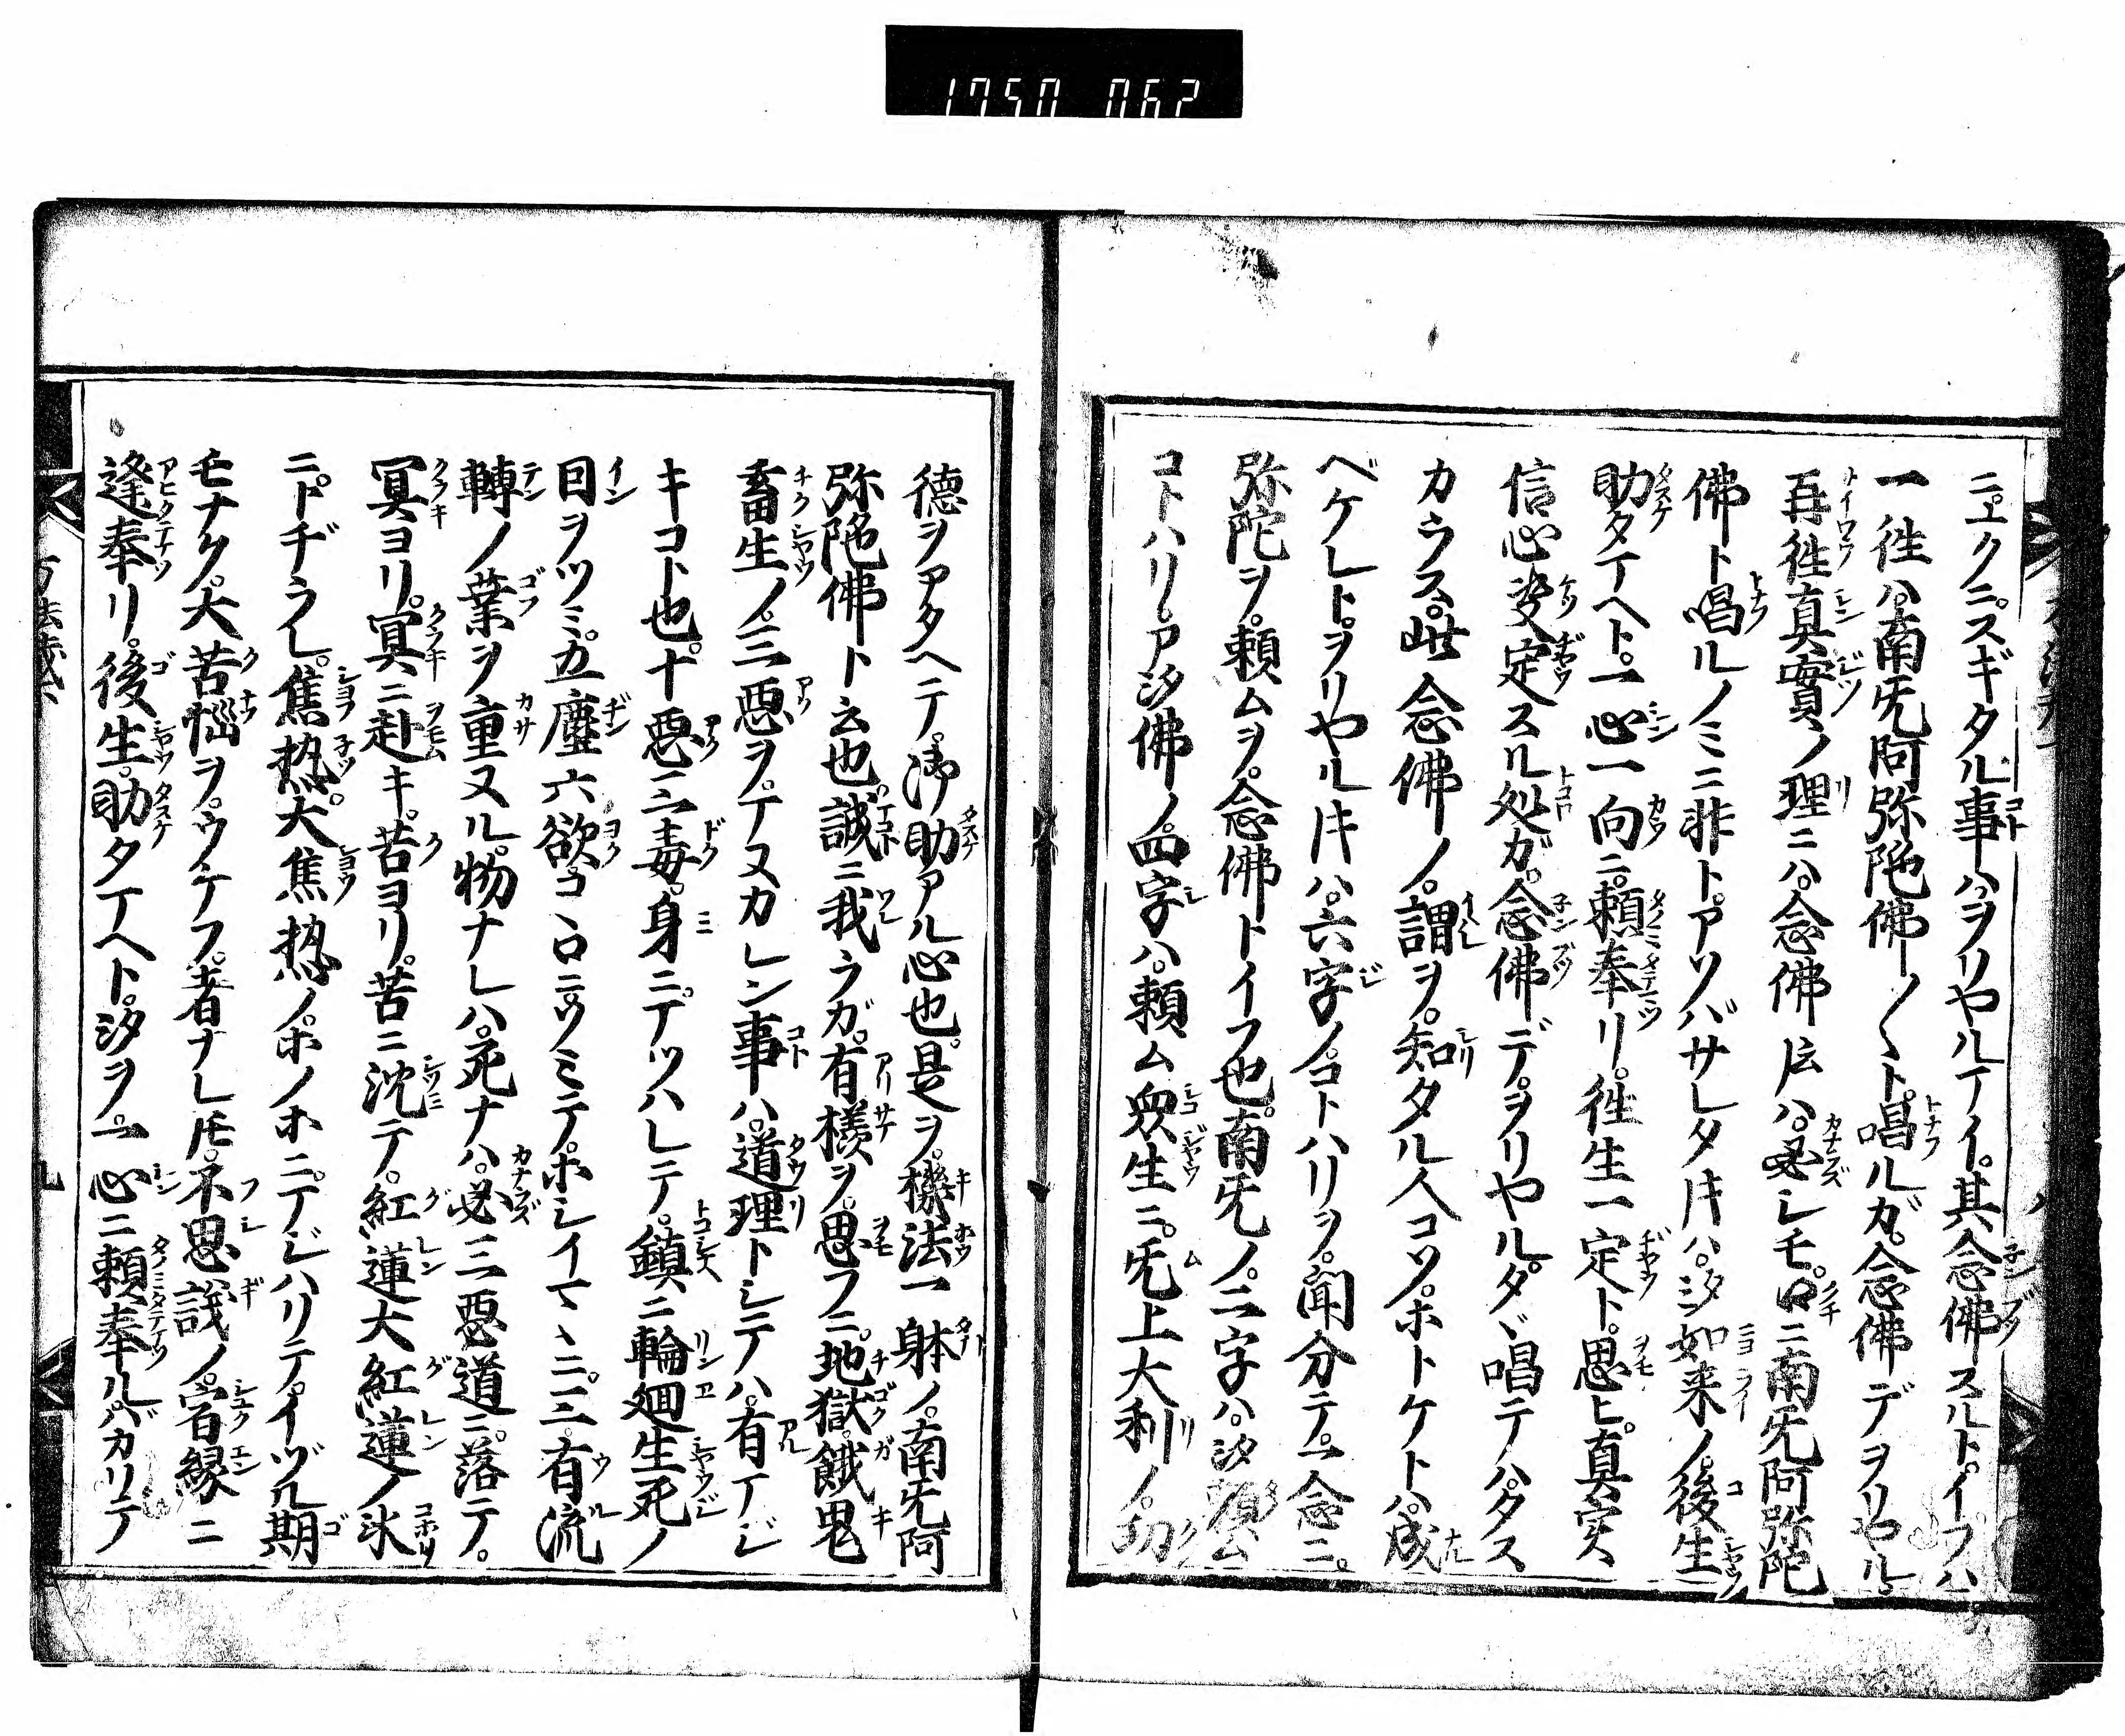 1750 062
ニ。エクニ。スギタル事ハ。ヲリヤルマイ。其念佛スルト。イフハ
一徃ハ。南旡阿弥陀佛〱ト。唱ルガ。念佛デヲリヤル
再徃真實ノ理ニハ。念佛トハ。必シモ。口ニ南旡阿弥陀
佛ト唱ルノミニ非ト。アソバサレタトキハ。弥如来ノ。後生
助タマヘト。一心一向ニ。頼奉リ。徃生一定ト。思ヒ。真実
信心。决定スル処ガ。念佛デ。ヲリヤル。タヾ唱テハ。タス
カラズ。此念佛ノ。謂ヲ。知タル人コソ。ホトケトハ。成
ベケレト。ヲリヤルトキハ。六字ノ。コトハリヲ。聞分テ。一念ニ。
弥陀ヲ。頼ムヲ。念佛トイフ也。南旡ノ。二字ハ。弥頼ム
コトハリ。ア弥佛ノ。四字ハ。頼ム衆生ニ。旡上大利ノ。功
徳ヲアタヘテ。御助アル心也。是ヲ。機法一躰ノ。南旡阿
弥陀佛ト云也。誠ニ我ラガ。有様ヲ。思フニ。地獄。餓鬼
畜生ノ。三惡ヲ。マヌカレン事ハ。道理トシテハ。有マジ
キコト也。十惡三毒。身ニ。マツハレテ。鎮ニ輪廻生死ノ
因ヲツミ。五塵六欲。コヽロニ。ソミテ。ホシイマヽニ。三有流
轉ノ業ヲ重ヌル。物ナレハ。死ナハ。必三惡道ニ。落テ。
冥ヨリ。冥ニ赴キ。苦ヨリ。苦ニ沈テ。紅蓮大紅蓮ノ氷
ニ。トヂラレ。焦熱。大焦熱ノ。ホノホニ。マジハリテ。イヅル期
モナク。大苦惱ヲ。ウケフ。者ナレトモ。不思議ノ。宿縁ニ
逢奉リ。後生。助タマヘト。弥ヲ。一心ニ頼奉ル。バカリテ